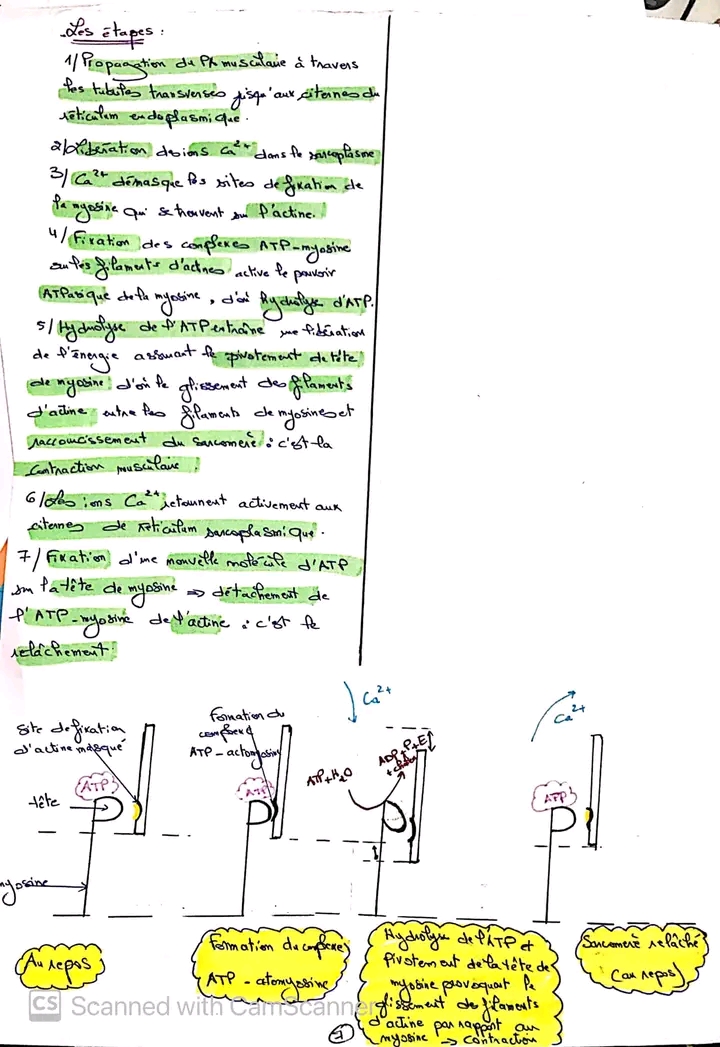 Les étapes :
1/ Propagation du PA musculaire à travers
les tubules transverses jusqu'aux citernes du
réticulum endoplasmique.
2/ Libération des ions Ca²⁺ dans le sarcoplasme
3/ Ca²⁺ démasque les sites de fixation de
la myosine qui se trouvent sur l'actine.
4/ Fixation des complexes ATP-myosine
sur les filaments d'actines active le pouvoir
ATPasique de la myosine, d'où hydrolyse d'ATP.
5/ Hydrolyse de l'ATP entraîne une libération
de l'énergie assurant le pivotement de tête
de myosine d'où le glissement des filaments
d'actine entre les filaments de myosines et
raccourcissement du sarcomère : c'est la
contraction musculaire.
6/ Les ions Ca²⁺ retournent activement aux
citernes de réticulum sarcoplasmique.
7/ Fixation d'une nouvelle molécule d'ATP
sur la tête de myosine => détachement de
l'ATP-myosine de l'actine : c'est le
relâchement.
Site de fixation
d'actine masqué
ATP
tête
myosine
Au repos
Formation du
complexe
ATP-actomyosine
ATP
Formation du complexe
ATP-atomyosine
Ca²⁺
ATP+H₂O
ADP+P+E
+ chaleur
Hydrolyse de l'ATP et
Pivotement de la tête de
myosine provoquant le
glissement de filaments
d'actine par rapport au
myosine → contraction
Ca²⁺
ATP
Sarcomère relâché
(au repos)
CS Scanned with CamScanner